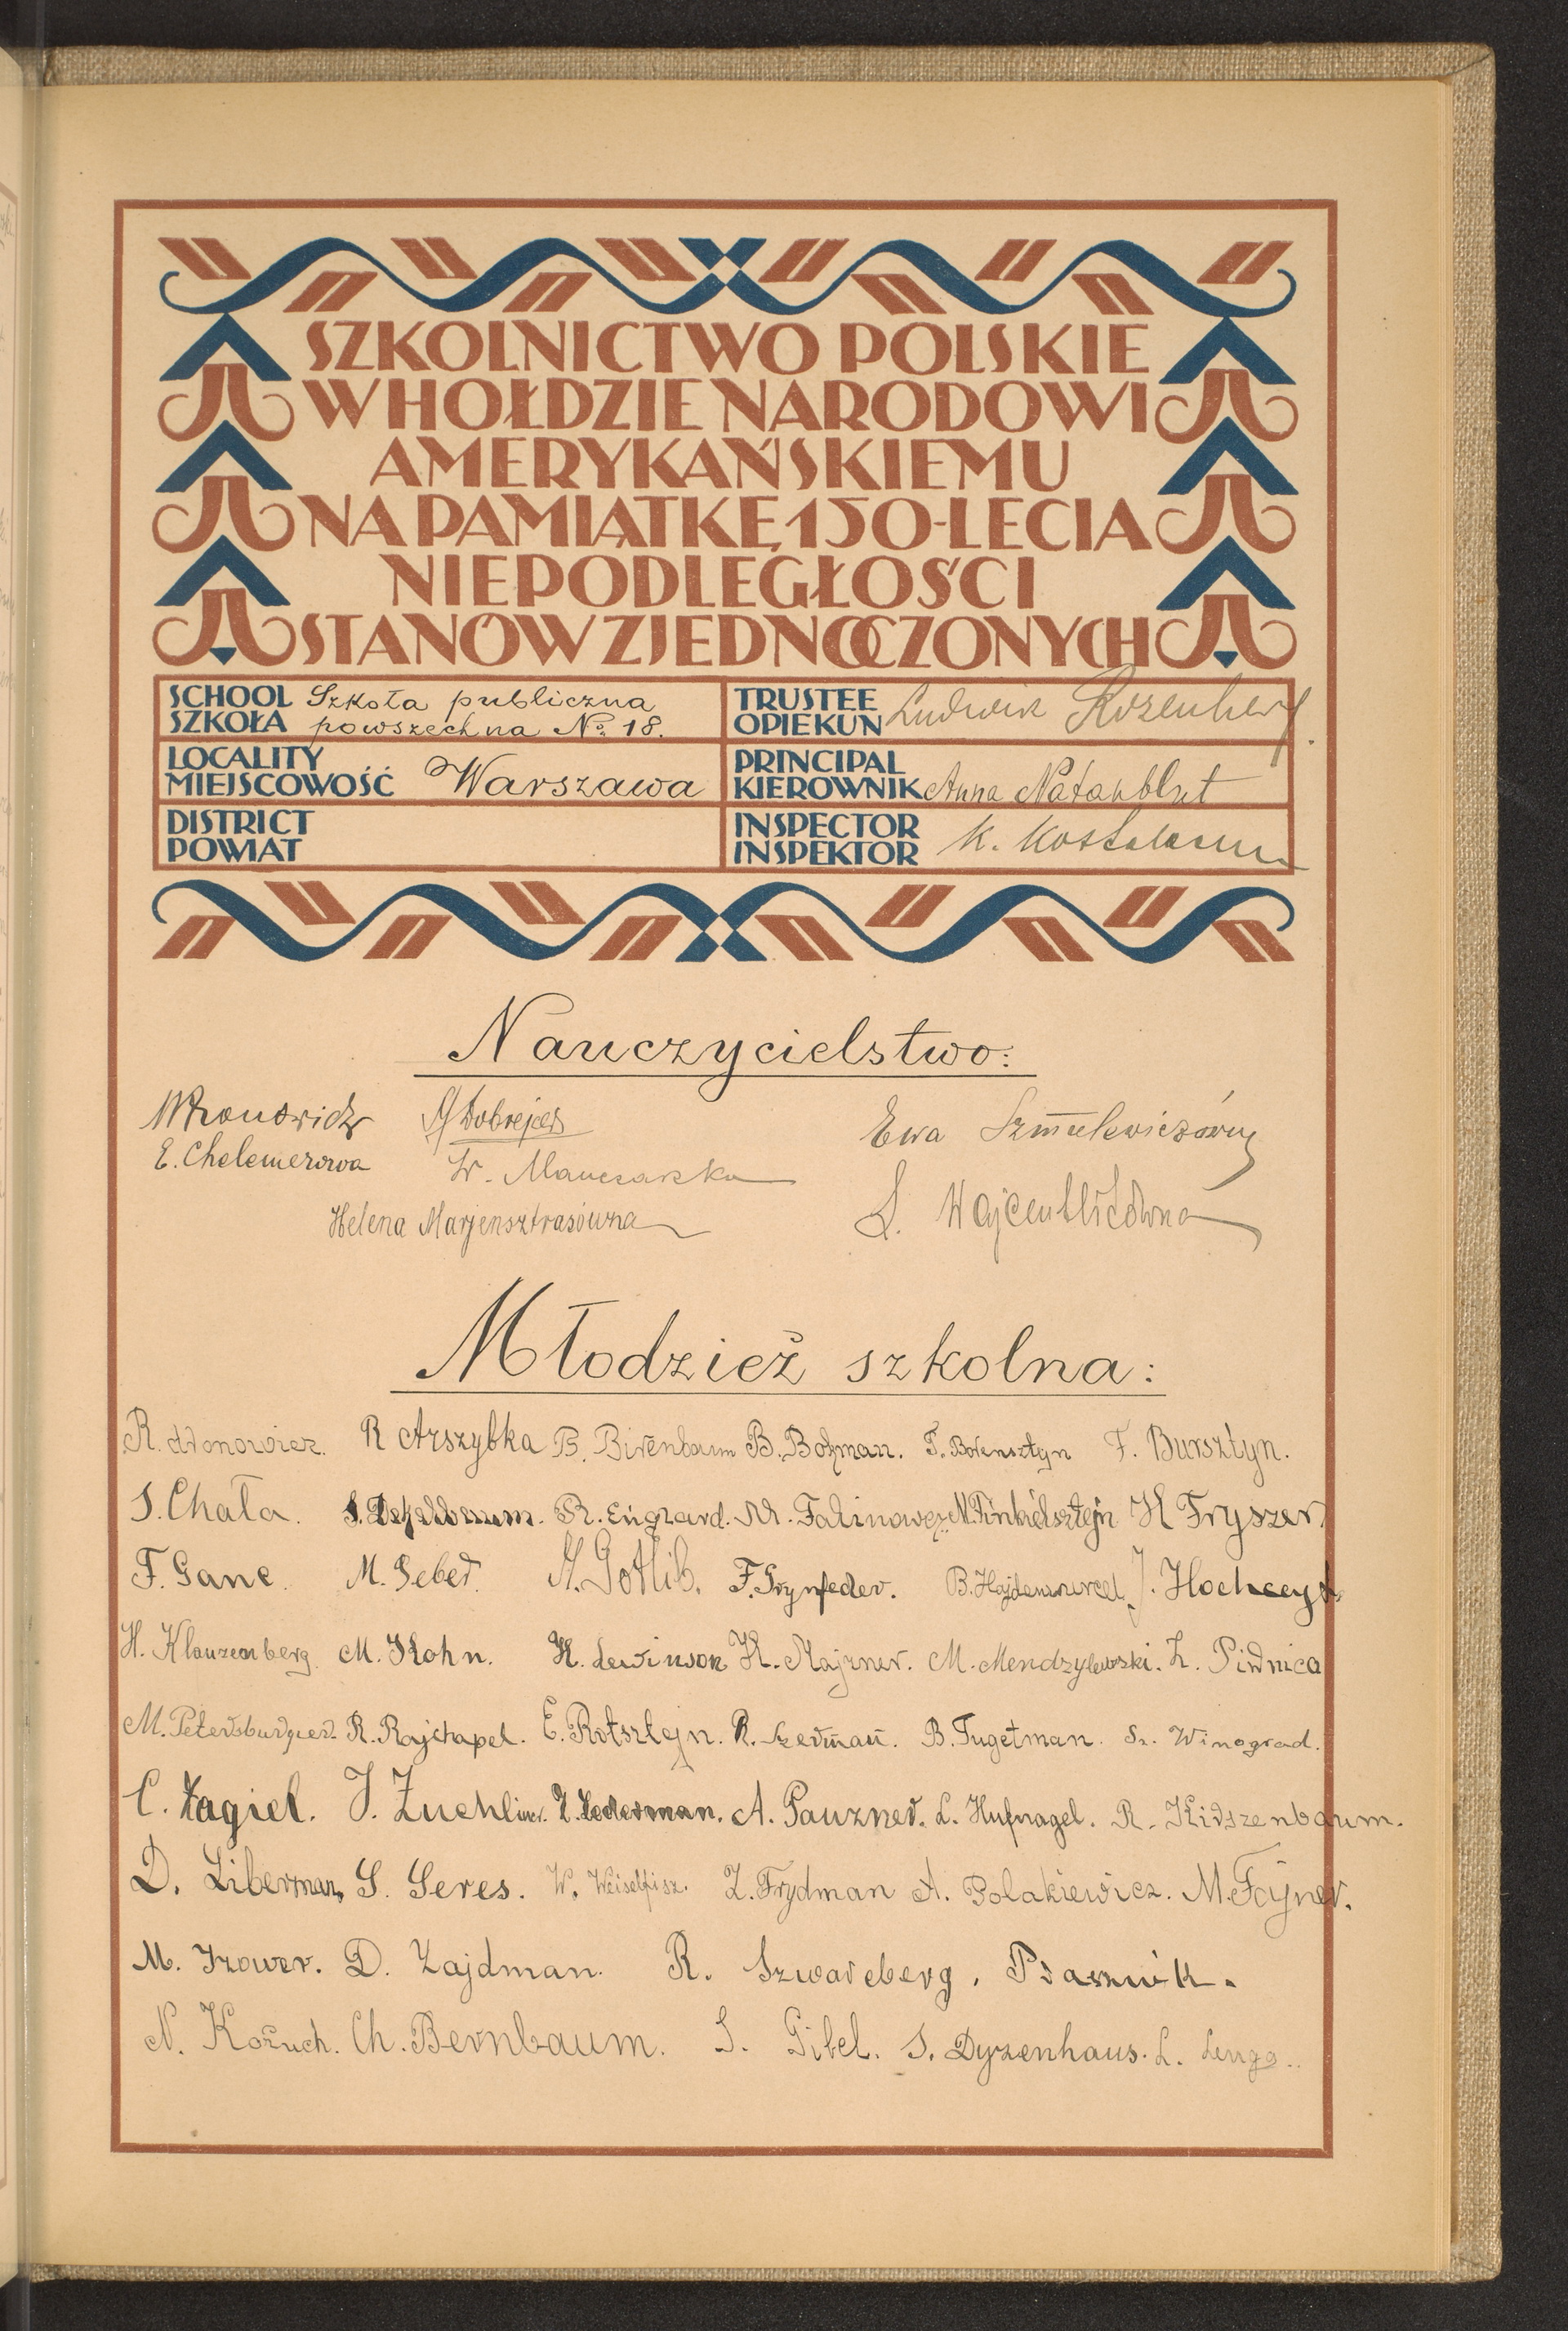 SZKOLNICTWO POLSKIE
W HOŁDZIE NARODOWI
AMERYKAŃSKIEMU
NA PAMIĄTKĘ 150-LECIA
NIEPODLEGŁOŚCI
STANÓW ZJEDNOCZONYCH
SCHOOL Szkoła publiczna
SZKOŁA powszechna No. 18.
TRUSTEE
OPIEKUN Ludwik Rozenberg.
LOCALITY
MIEJSCOWOŚĆ Warszawa
PRINCIPAL
KIEROWNIK Anna Natanblut
DISTRICT
POWIAT
INSPECTOR
INSPEKTOR K.
Nauczycielstwo:
Ewa Szmulewiczówna
E. Chelemerowa
Helena Marjensztrasówna
Młodzież szkolna:
R. Aronowicz. R Arszybka B. Birenbaum B. Bokman. F. Borensztyn F. Bursztyn.
S. Chała. R. Englard. M. Falinower N. Finkielsztejn H Fryszer.
F. Ganc. M. Geber. Gotlib. F. Grynfeder. B. Hajdenwurcel. J.
H. Klauzenberg. M. Kohn. H. Lewinson H. Majzner. M. Mendzylewski. L. Piwnica
M. Petersburgier. R. Rajchapel. E. Rotsztejn. R. Szerman. B. Tugetman. Sz. Winograd.
C. Żagiel. J. Zuchliner. Lederman. A. Pauzner. L. Hufnagel. R. Kirszenbaum.
D. Liberman. S. Seres. W. Weiselfisz. Z. Frydman A. Polakiewicz. M. Fajner.
M. Izower. D. Zajdman. R. Szwarcberg. Prasznik.
N. Kożuch. Ch. Bernbaum. S. Gibel. S. Dyzenhaus. L. Lenga.